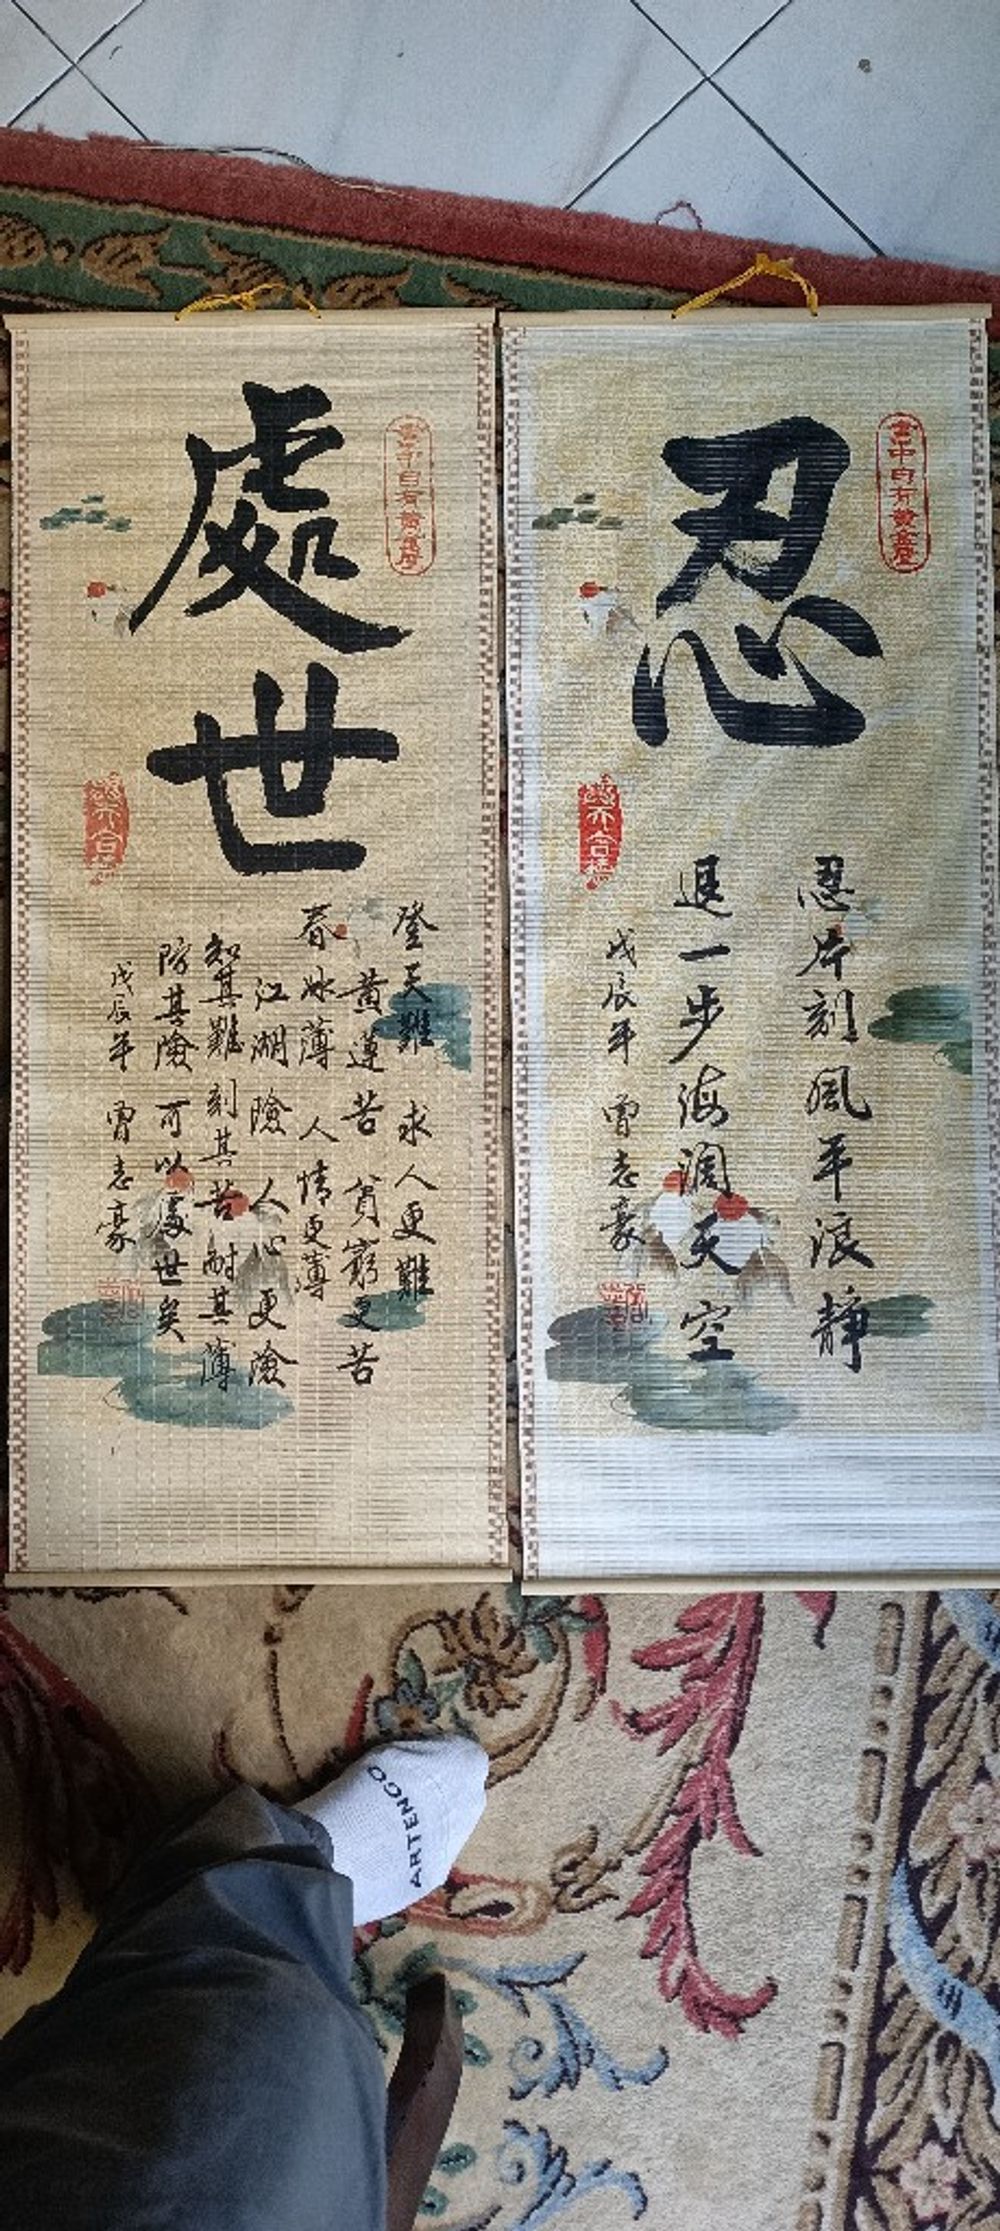 處世
書中自有黃金屋
登天難 求人更難
黃蓮苦 貧窮更苦
春冰薄 人情更薄
江湖險 人心更險
知其難 刻其苦 耐其薄
防其險 可以處世矣
戊辰年 曾志豪
忍
書中自有黃金屋
忍片刻風平浪静
退一步海濶天空
戊辰年 曾志豪
ARTENGO